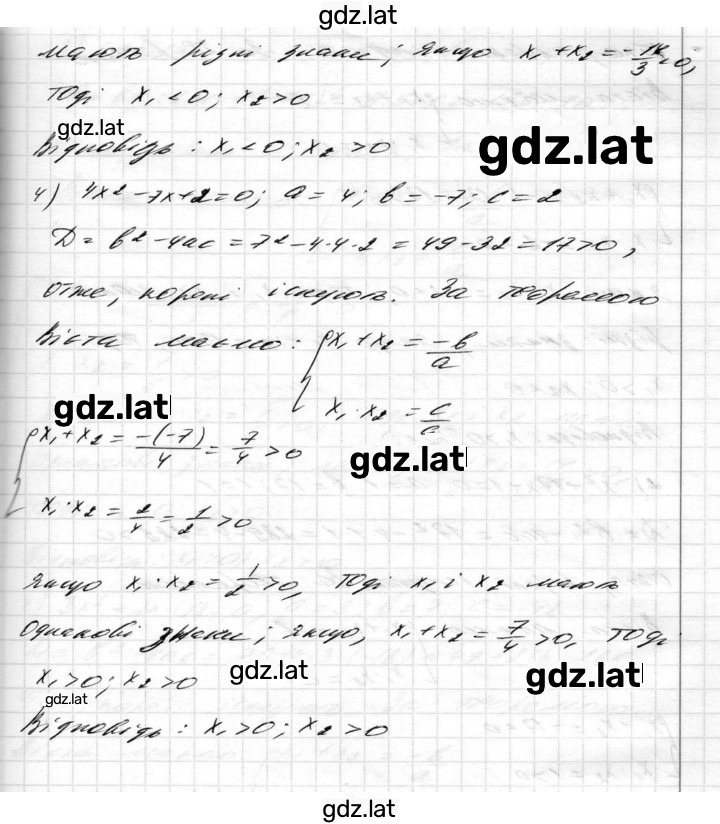 gdz.lat
мають різні знаки; якщо x₁ + x₂ = -14/3 < 0,
тоді x₁ < 0; x₂ > 0
gdz.lat
Відповідь: x₁ < 0; x₂ > 0
gdz.lat
4) 4x² - 7x + 2 = 0; a = 4; b = -7; c = 2
D = b² - 4ac = 7² - 4·4·2 = 49 - 32 = 17 > 0,
отже, корені існують. За теоремою
Вієта маємо: { x₁ + x₂ = -b/a
x₁ · x₂ = c/a
gdz.lat
{ x₁ + x₂ = -(-7)/4 = 7/4 > 0
gdz.lat
x₁ · x₂ = 2/4 = 1/2 > 0
якщо x₁ · x₂ = 1/2 > 0, тоді x₁ і x₂ мають
однакові знаки; якщо, x₁ + x₂ = 7/4 > 0, тоді
x₁ > 0; x₂ > 0
gdz.lat
gdz.lat
gdz.lat
Відповідь: x₁ > 0; x₂ > 0
gdz.lat